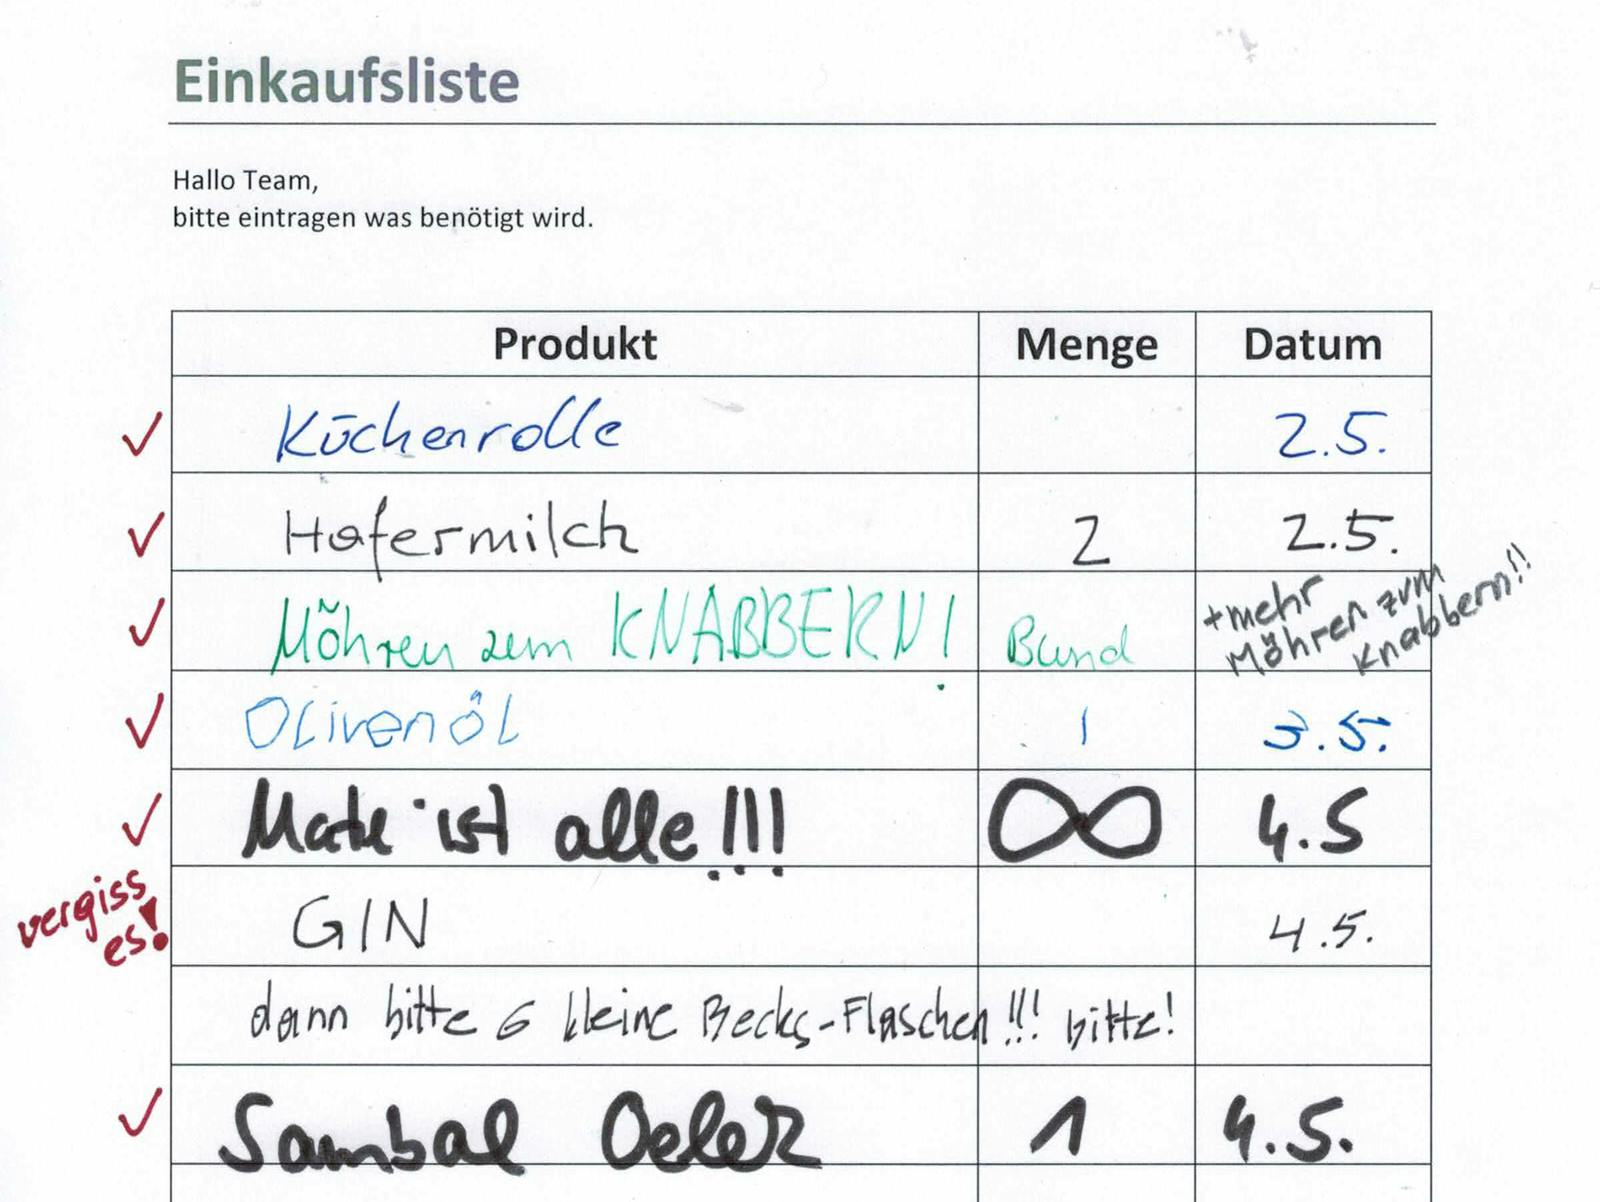 Einkaufsliste
Hallo Team,
bitte eintragen was benötigt wird.
Produkt Menge Datum
Küchenrolle 2.5.
Hafermilch 2 2.5.
Möhren zum KNABBERN! Bund
+mehr
Möhren zum
Knabbern!!
Olivenöl 1 3.5.
Mate ist alle!!! ∞ 4.5
vergiss
es!
GIN 4.5.
dann bitte 6 kleine Becks-Flaschen!!! bitte!
Sambal Oelek 1 4.5.